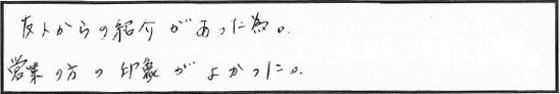 友人からの紹介があった為。
営業の方の印象がよかった。